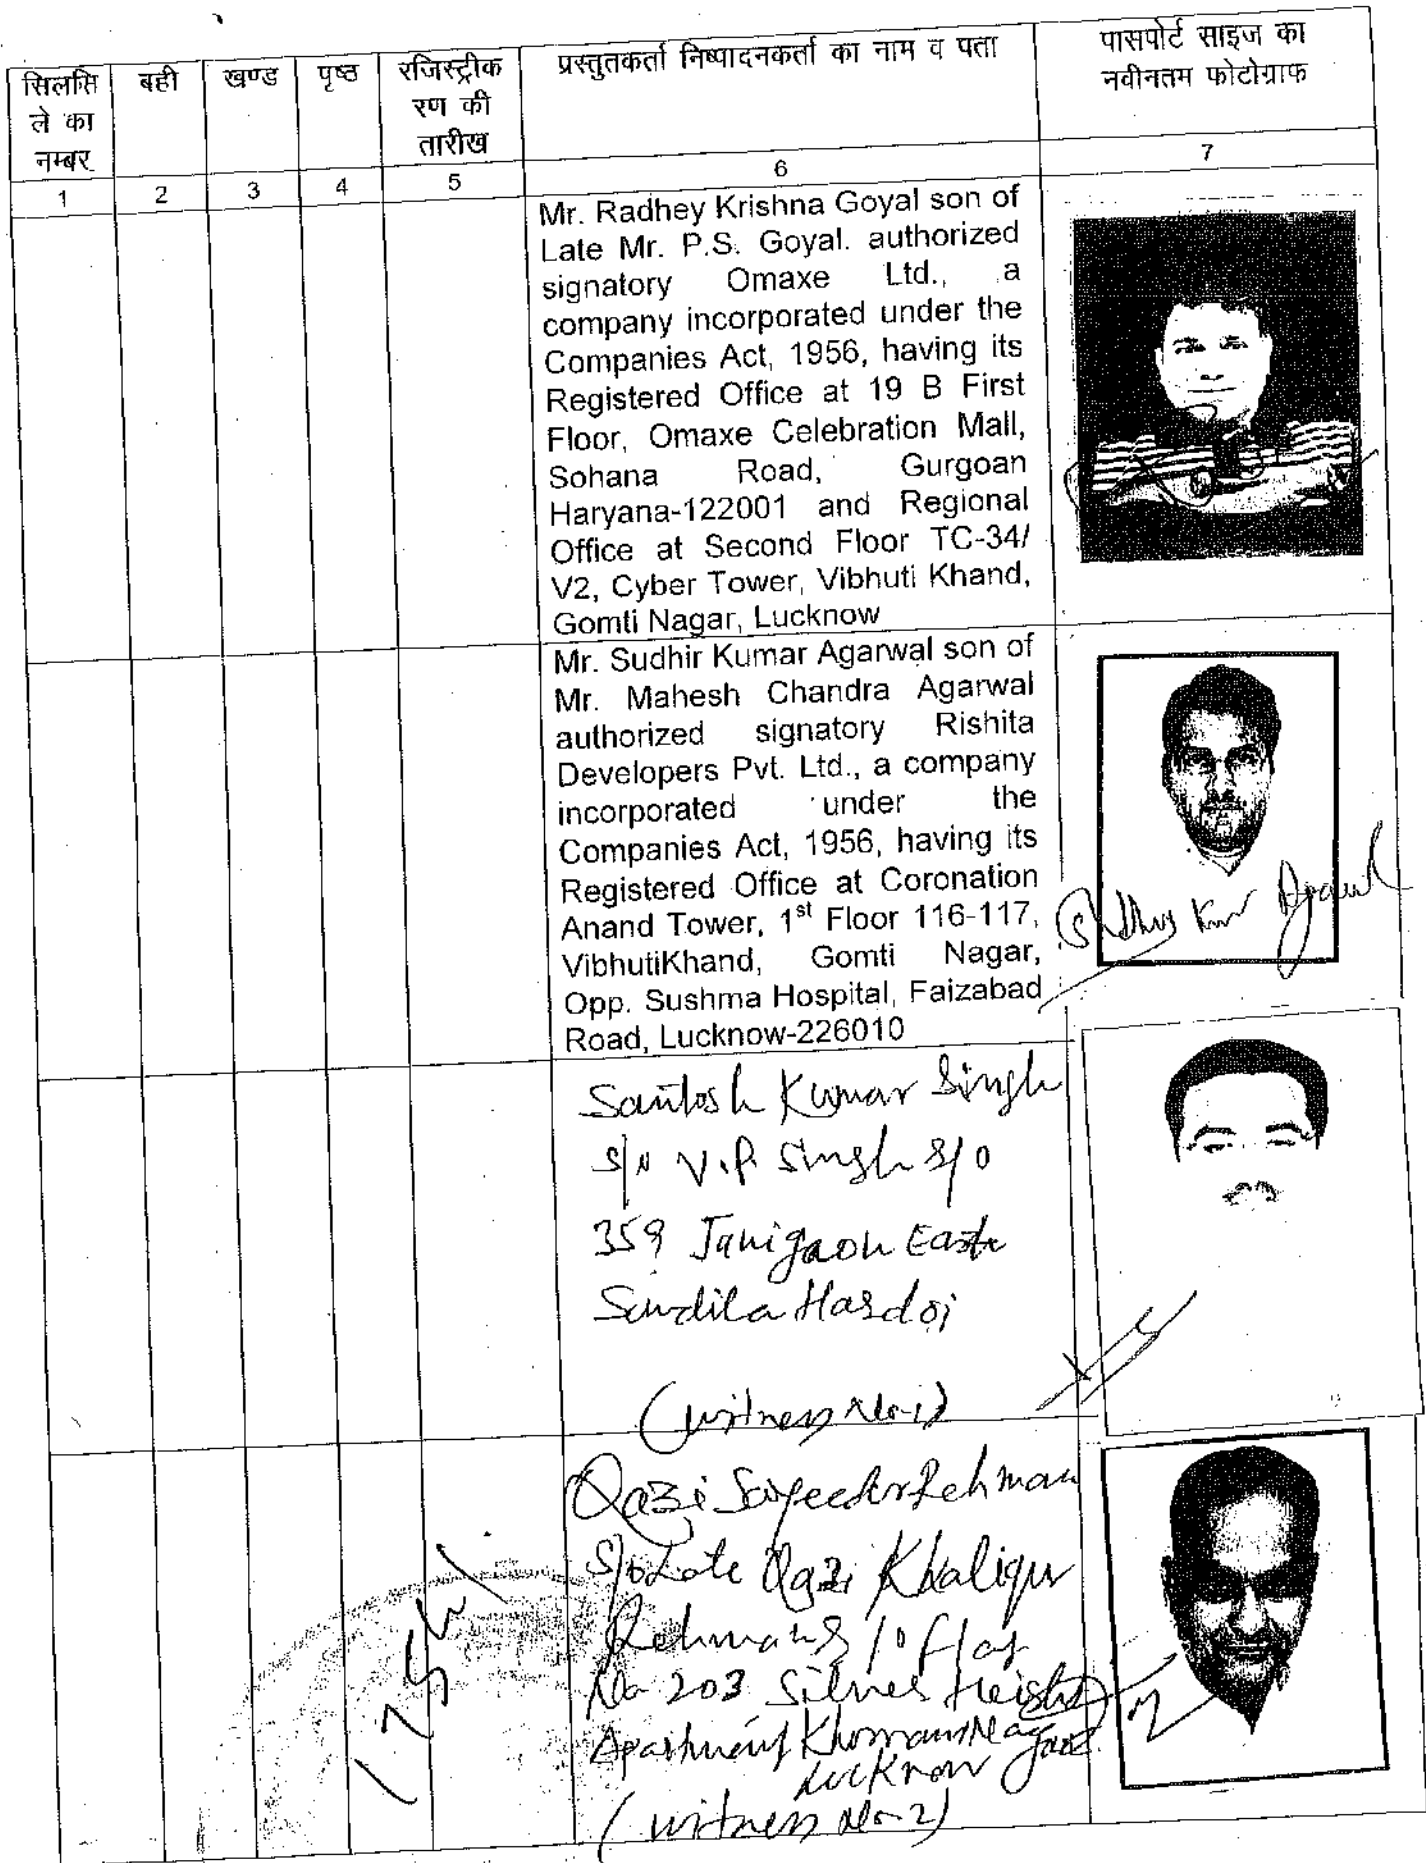 सिलसि
ले का
नम्बर
बही
खण्ड
पृष्ठ
रजिस्ट्रीक
रण की
तारीख
प्रस्तुतकर्ता निष्पादनकर्ता का नाम व पता
पासपोर्ट साइज का
नवीनतम फोटोग्राफ
1 2 3 4 5 6 7
Mr. Radhey Krishna Goyal son of
Late Mr. P.S. Goyal. authorized
signatory Omaxe Ltd., a
company incorporated under the
Companies Act, 1956, having its
Registered Office at 19 B First
Floor, Omaxe Celebration Mall,
Sohana Road, Gurgoan
Haryana-122001 and Regional
Office at Second Floor TC-34/
V2, Cyber Tower, Vibhuti Khand,
Gomti Nagar, Lucknow
Mr. Sudhir Kumar Agarwal son of
Mr. Mahesh Chandra Agarwal
authorized signatory Rishita
Developers Pvt. Ltd., a company
incorporated under the
Companies Act, 1956, having its
Registered Office at Coronation
Anand Tower, 1st Floor 116-117,
VibhutiKhand, Gomti Nagar,
Opp. Sushma Hospital, Faizabad
Road, Lucknow-226010
Santosh Kumar Singh
V.P. Singh
359 East
Sandila Hardoi
(witness No-1)
Qazi
S/o Late Qazi Khaliqur
Rehman Flat
No 203 Silver Height
Apartment Nagar
Lucknow
(witness No-2)